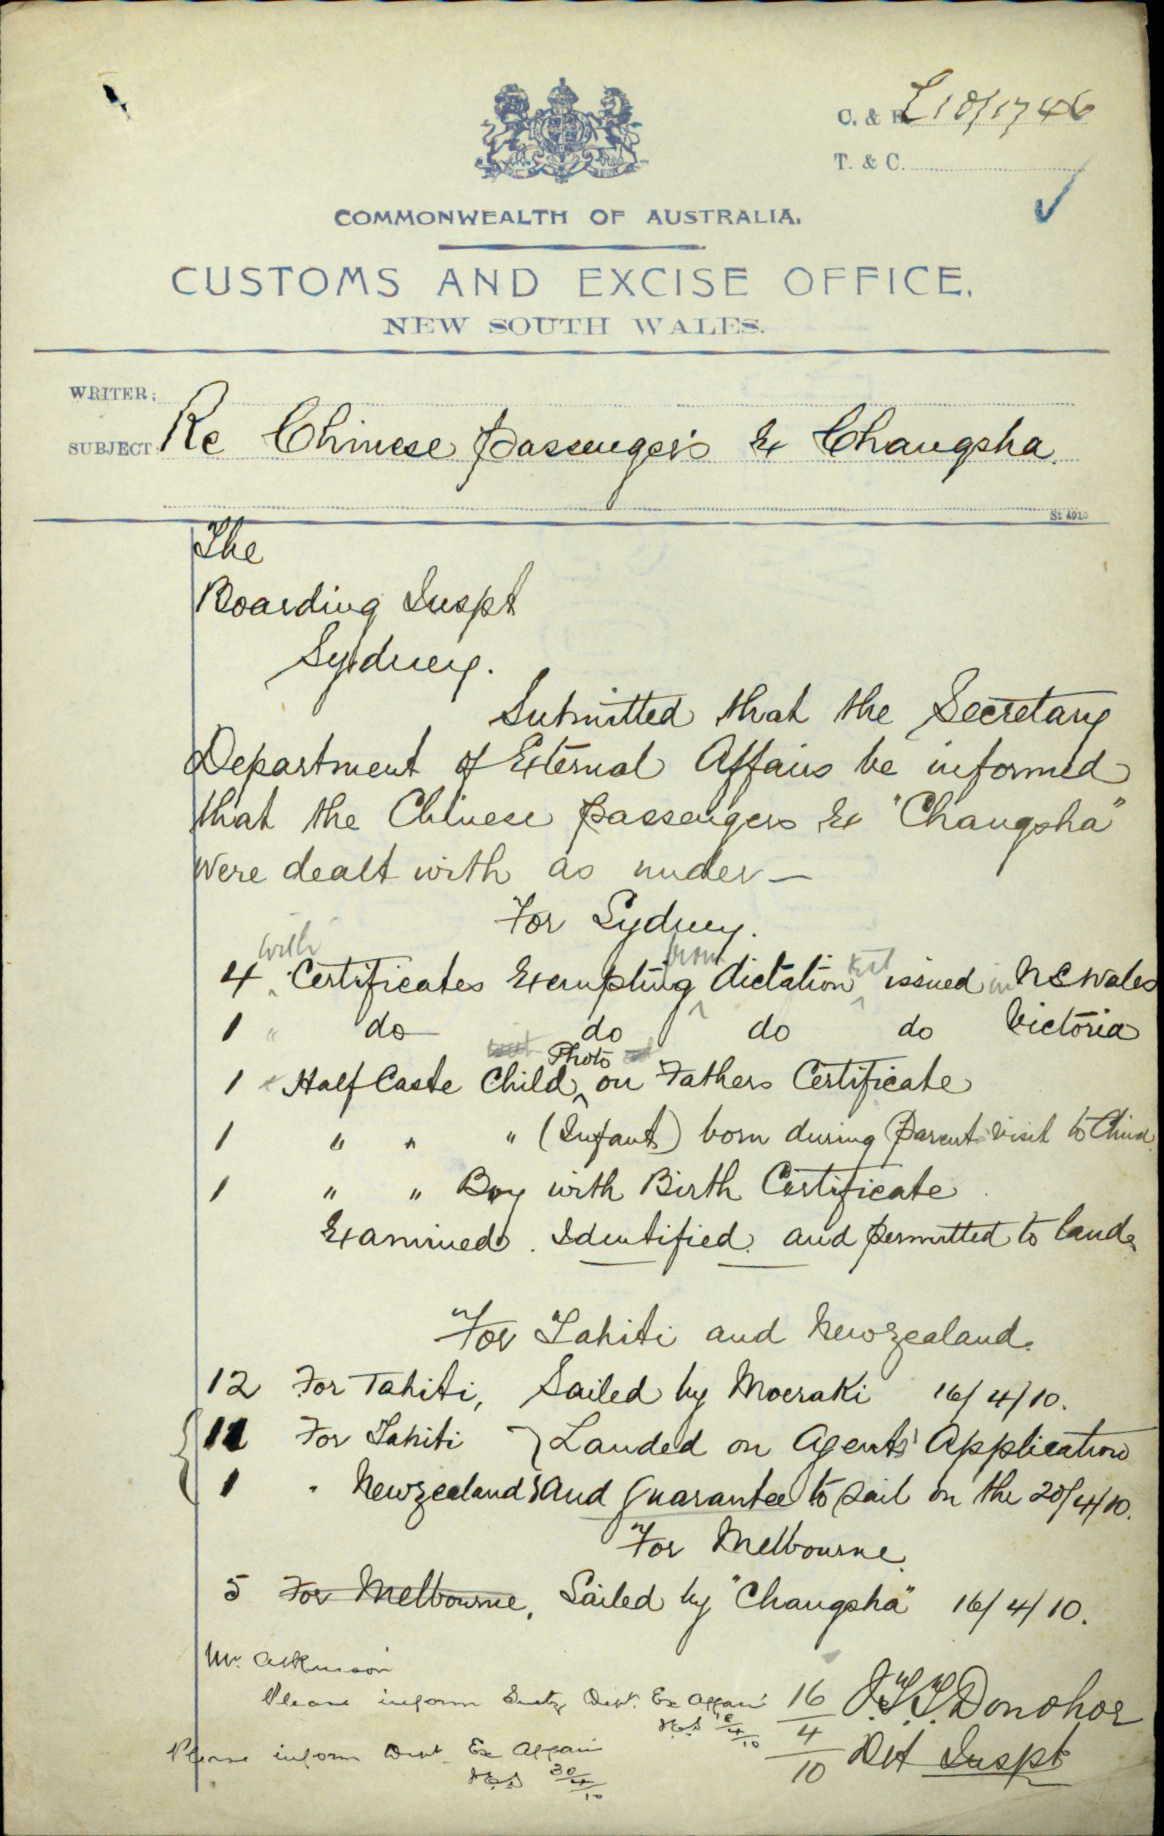 C. & E. L10/1746
T. & C.
COMMONWEALTH OF AUSTRALIA.
CUSTOMS AND EXCISE OFFICE.
NEW SOUTH WALES.
WRITER:
SUBJECT: Re Chinese passengers Ex Changsha.
The
Boarding Inspt
Sydney.
Submitted that the Secretary
Department of External Affairs be informed
that the Chinese passengers Ex "Changsha"
were dealt with as under—
For Sydney.
4 with Certificates Exempting from dictation test issued in N S Wales
1 " do do do do Victoria
1 Half Caste Child Photo on Fathers Certificate
1 " " " (Infant) born during Parents visit to China
1 " " Boy with Birth Certificate
Examined. Identified. and permitted to land.
For Tahiti and Newzealand.
12 For Tahiti, Sailed by Moeraki 16/4/10.
11 For Tahiti } Landed on Agents' Application
1 " Newzealand } and Guarantee to sail on the 20/4/10.
For Melbourne.
5 For Melbourne, Sailed by "Changsha" 16/4/10.
Mr. Atkinson
Please inform Secty Dept. Ex Affairs
Please inform Dept Ex Affairs
30/4/10
16/4/10
Donohoe
Det Inspt